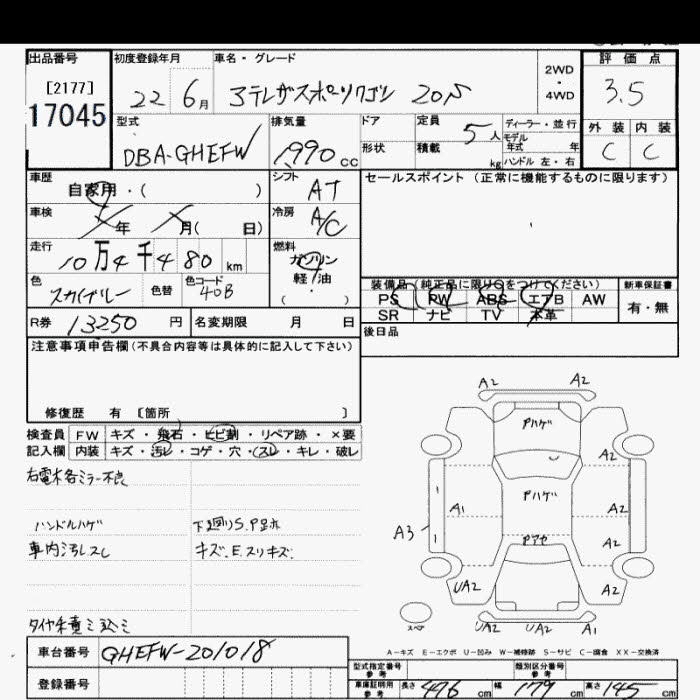 出品番号
[2177]
17045
初度登録年月
22 6月
車名・グレード
アテンザスポーツワゴン 20S
2WD
・
4WD
評価点
3.5
外装 内装
C C
型式
DBA-GHEFW
排気量
1990 cc
ドア
形状
定員
5人
積載
kg
ディーラー・並行
モデル
年式 年
ハンドル 左・右
車歴
自家用・( )
シフト
AT
セールスポイント (正常に機能するものに限ります)
車検
年 月( 日)
冷房
A/C
走行
10万4千480 km
燃料
ガソリン
軽油
・
( )
色
スカイブルー
色替
色コード
40B
装備品(純正品に限り○をつけてください)
PS PW ABS エアB AW
SR ナビ TV 本革
新車保証書
有・無
R券 13250 円
名変期限 月 日
後日品
注意事項申告欄(不具合内容等は具体的に記入して下さい)
修復歴 有 [箇所 ]
検査員 FW キズ・飛石・ヒビ割・リペア跡・×要
記入欄 内装 キズ・汚レ・コゲ・穴・(スレ・キレ・破レ
右電格ミラー不良
ハンドルハゲ
下廻りS.P跡
車内汚レスレ
キズ.E.スリキズ
タイヤ積ミ込ミ
A2 A2
Pハゲ
A2
Pハゲ
A1 A2
A3
A2
Pアセ
UA2 A2
UA2 UA2 A1
A-キズ E-エクボ U-凹み W-補修跡 S-サビ C-腐食 XX-交換済
車台番号 GHEFW-201018
登録番号
型式指定番号
参考
類別区分番号
参考
車庫証明用
参考
長さ 476 cm 幅 179 cm 高さ 145 cm